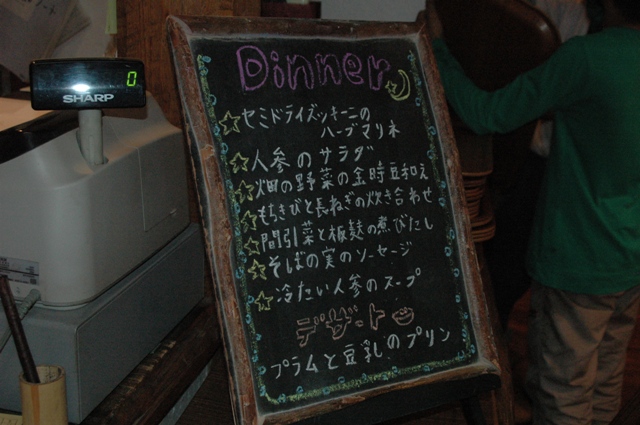 0
SHARP
Dinner
セミドライズッキーニの
ハーブマリネ
人参のサラダ
畑の野菜の金時豆和え
もちきびと長ねぎの炊き合わせ
間引菜と板麩の煮びたし
そばの実のソーセージ
冷たい人参のスープ
デザート
プラムと豆乳のプリン